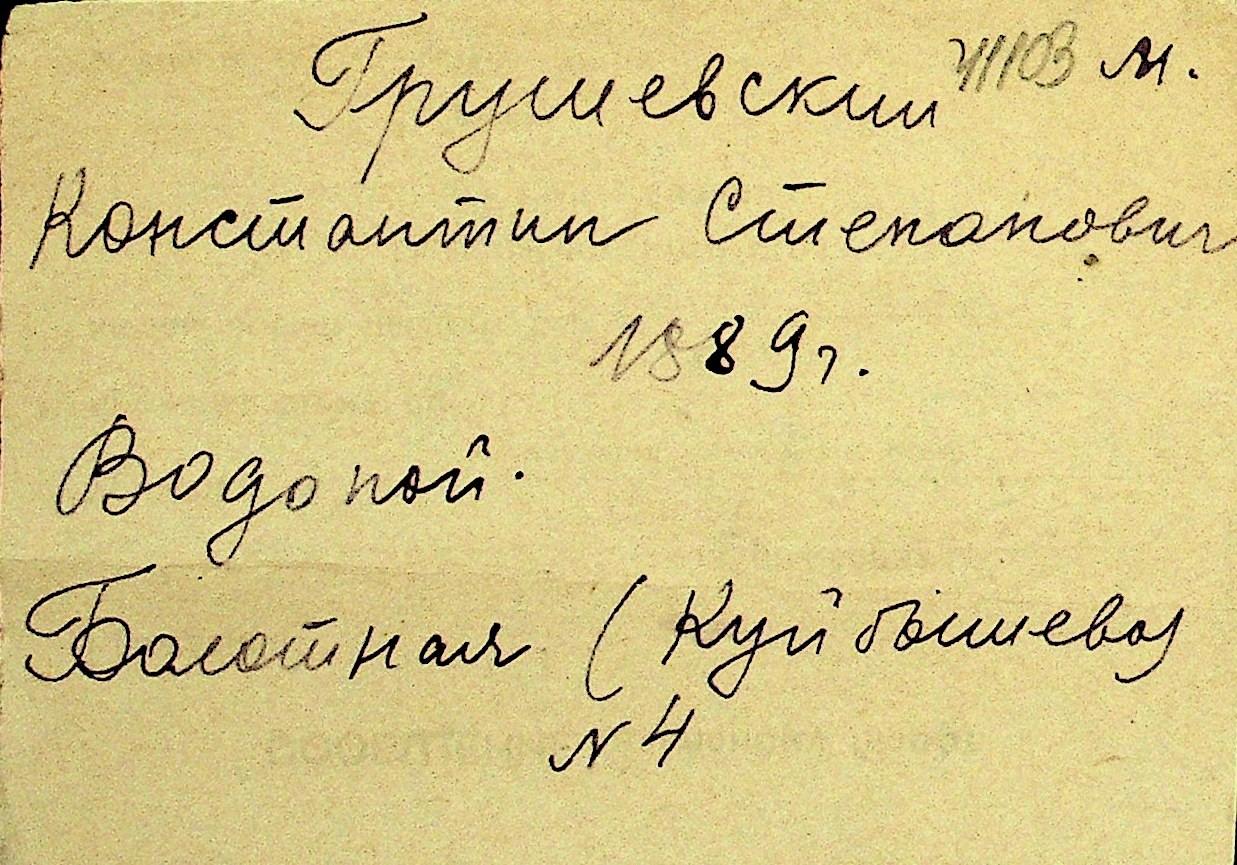 Грушевский 41103 м.
Константин Степанович
1889 г.
Водопой.
Болотная (Куйбышева)
N 4